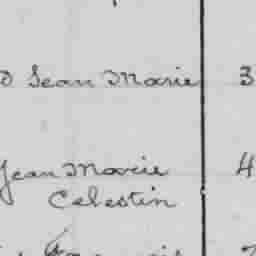 Jean Marie 3
Jean Marie 4
Celestin